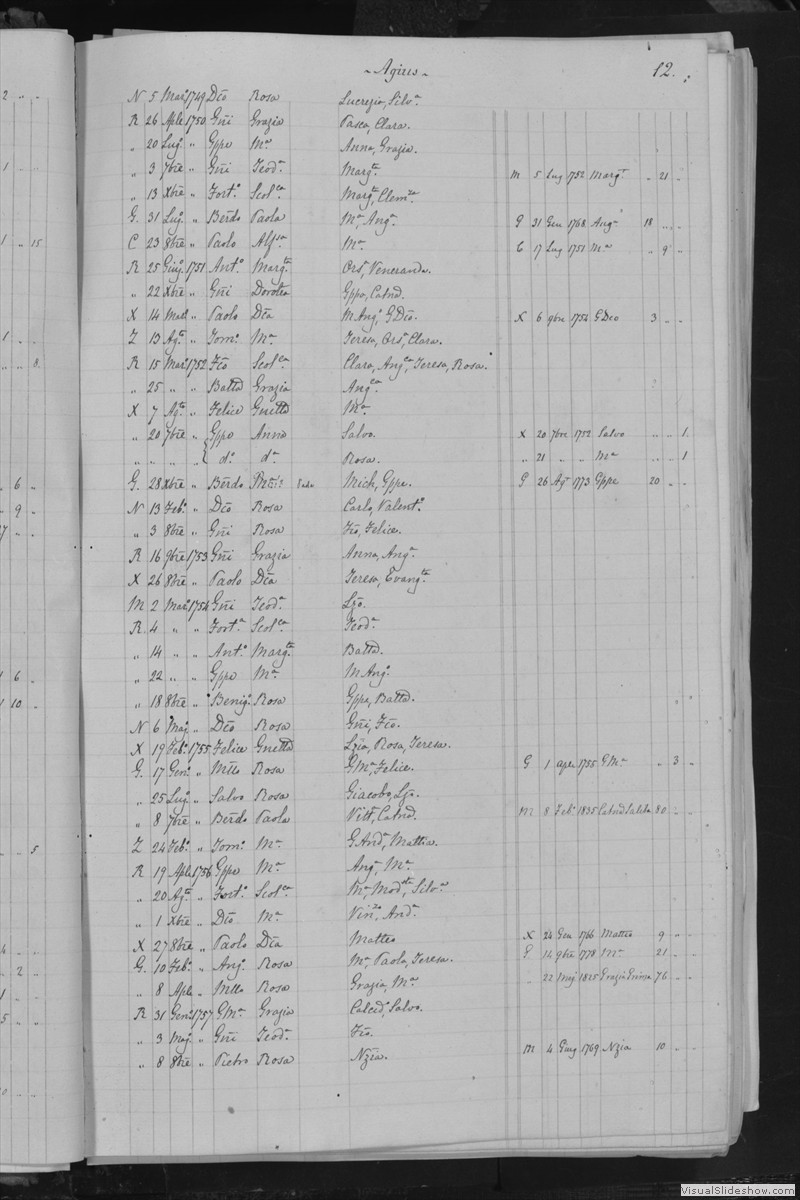 Agius 12.
N 5 Mar. 1749 Dío Rosa Lucrezio, Silv.a
R 26 Aple 1750 Gñi Grazia Pasca, Clara.
" 20 Lug. " Gppe Ma Anna, Grazia.
" 3 7bre " Gñi Teod.a Marg.ta M 5 Lug 1752 Marg.t " 21 "
" 13 Xbre " Fort.o Scol.ca Marg.ta, Clem.za
G. 31 Lug. " Berdo Paola Ma, Ang.a G 31 Gen 1768 Ang.a 18 " "
C 23 8bre " Paolo Ma C 17 Lug 1751 Ma " 9 "
R 25 Giug. 1751 Ant.o Marg.ta Ors.a, Veneranda.
" 22 Xbre " Gñi Dorotea Gppa, Catnd.
X 14 " Paolo Día M Ang.o, G Dío. X 6 9bre 1754 G Deo 3 " "
Z 13 Ag.to " Tom.o Ma Teresa, Ors.a, Clara.
R 15 Mar. 1752 Fío Scol.ca Clara, Ang.ca, Teresa, Rosa.
" 25 " " Batta Grazia Ang.ca
X 7 Ag.to " Felice Gnetta Ma
" 20 7bre " Gppe Anna Salvo. X 20 7bre 1752 Salvo " " 1.
" " " " d.o d.a Rosa. " 21 " " Ma " " 1
G. 28 Xbre " Berdo Mich, Gppe. G 26 Ag.t 1773 Gppe 20 " "
N 13 Feb. " Dío Rosa Carlo, Valent.o
" 3 8bre " Gñi Rosa Fío, Felice.
R 16 9bre 1753 Gñi Grazia Anna, Ang.a
X 26 8bre " Paolo Día Teresa, Evang.ta
M 2 Mar. 1754 Gñi Teod.a Lzo.
R 4 " " Fort.o Scol.ca Teod.a
" 14 " " Ant.o Marg.ta Batta.
" 22 " " Gppe Ma M Ang.o
" 18 8bre " Benig. Rosa Gppe, Batta.
N 6 Mag. " Dío Rosa Gñi, Fío.
X 19 Feb. 1755 Felice Gnetta Lzia, Rosa, Teresa.
G. 17 Gen. " Mtteo Rosa G Ma, Felice. G 1 aple 1755 G Ma " 3 "
" 25 Lug. " Salvo Rosa Giacobo, Lzo.
" 8 7bre " Berdo Paola Vitt.a, Catnd. M 8 Feb. 1835 Catnd Saliba 80 " "
Z 24 Feb. " Tom.o Ma G And.a, Mattia.
R 19 Aple 1756 Gppe Ma Ang.a, Ma
" 20 Ag.to " Fort.o Scol.ca Ma, Mod.sta, Silv.a
" 1 Xbre " Dío Ma Vin.zo, And.a
X 27 8bre " Paolo Día Matteo X 24 Gen 1766 Matteo 9 " "
G. 10 Feb. " Ang.o Rosa Ma, Paola, Teresa. G 14 9bre 1778 Ma 21 " "
" 8 Aple " Mtteo Rosa Grazia, Ma " 22 Mag 1825 Grazia 76 " "
R 31 Gen. 1757 G Ma Grazia Calced.o, Salvo.
" 3 Mag. " Gñi Teod.a Fío.
" 8 8bre " Pietro Rosa Nzia. M 4 Giug 1769 Nzia 10 " "
VisualSlideshow.com